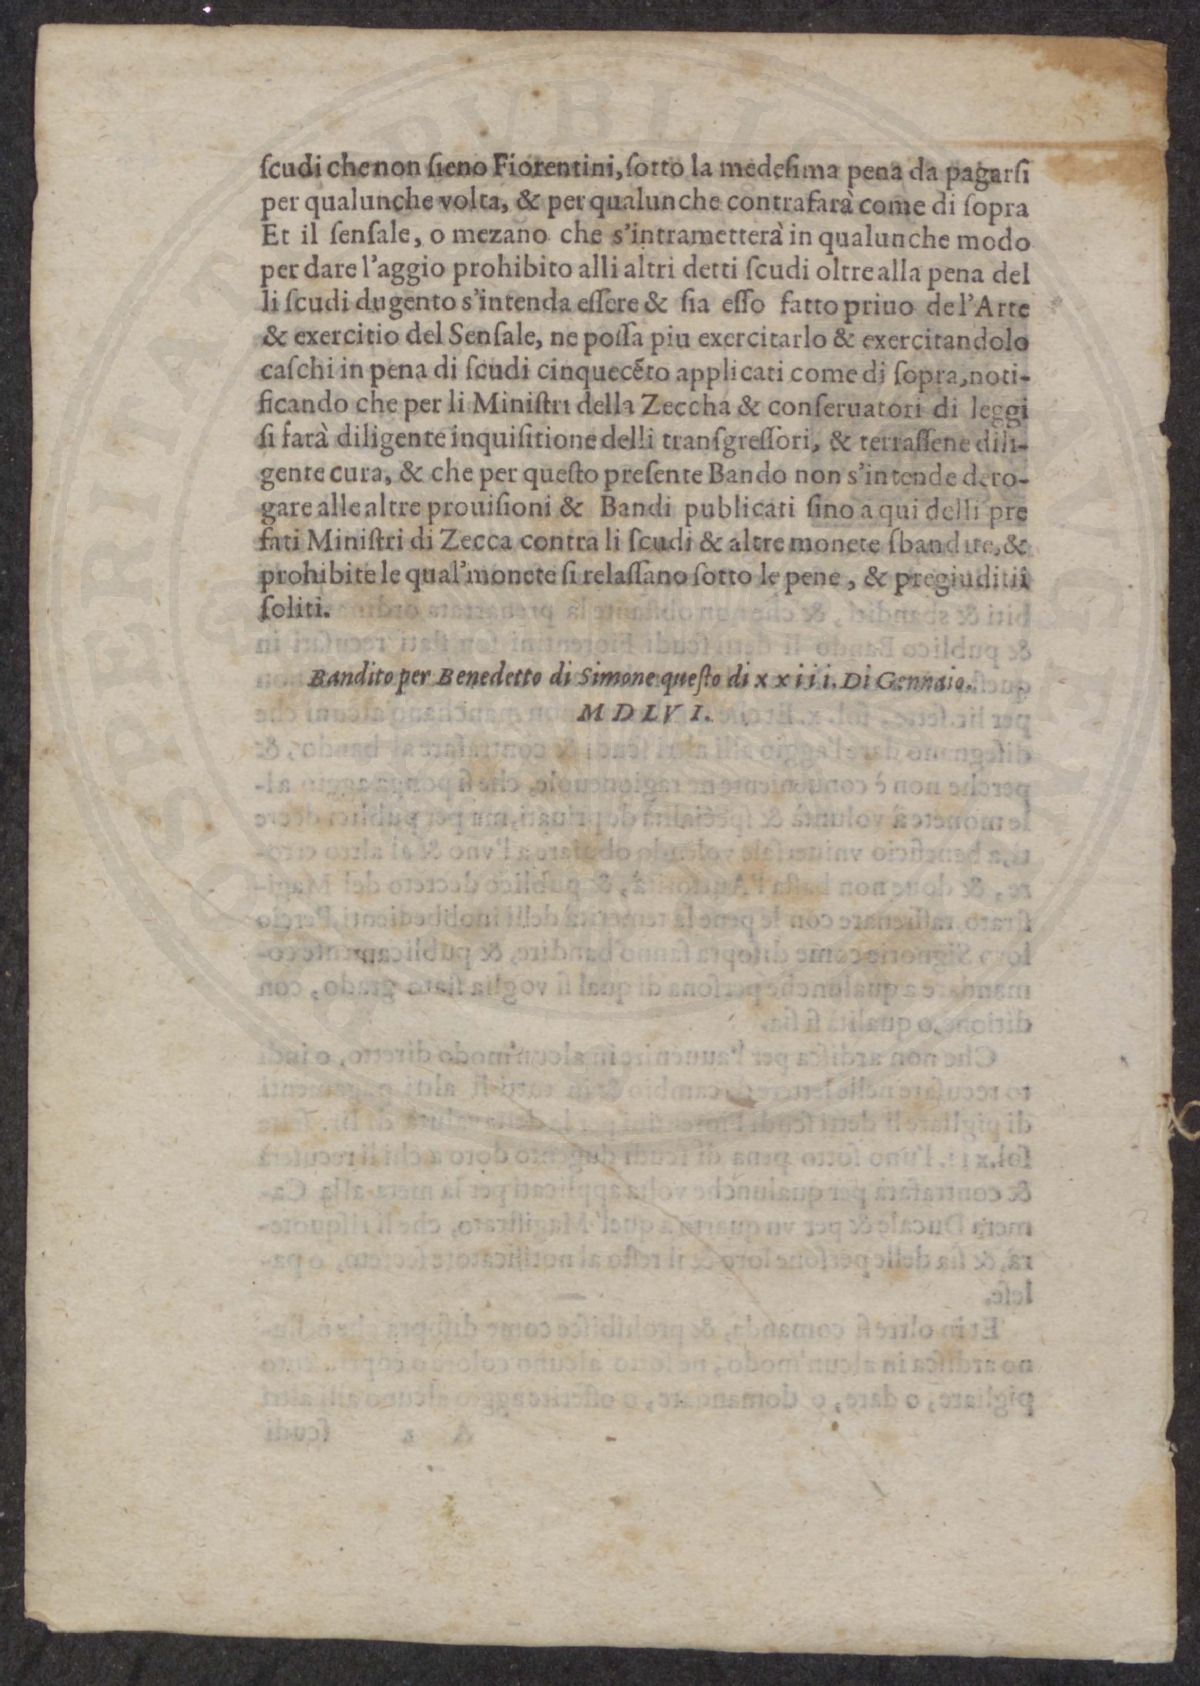 ſcudi che non ſieno Fiorentini, ſotto la medeſima pena da pagarſi
per qualunche volta, & per qualunche contrafarà come di ſopra
Et il ſenſale, o mezano che s'intrametterà in qualunche modo
per dare l'aggio prohibito alli altri detti ſcudi oltre alla pena del
li ſcudi dugento s'intenda eſſere & ſia eſſo fatto priuo de l'Arte
& exercitio del Senſale, ne poſſa piu exercitarlo & exercitandolo
caſchi in pena di ſcudi cinquecẽto applicati come di ſopra, noti-
ficando che per li Miniſtri della Zeccha & conſeruatori di leggi
ſi farà diligente inquiſitione delli tranſgreſſori, & terraſſene dili-
gente cura, & che per queſto preſente Bando non s'intende dero-
gare alle altre prouiſioni & Bandi publicati ſino a qui delli pre
fati Miniſtri di Zecca contra li ſcudi & altre monete ſbandite, &
prohibite le qual'monete ſi relaſſano ſotto le pene, & pregiuditii
ſoliti.
Bandito per Benedetto di Simone queſto di xxiii. Di Gennaio.
MDLVI.